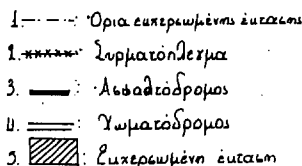 1. Όρια εκχερσωμένης έκτασης
2. Συρματόπλεγμα
3. Ασφαλτόδρομος
4. Χωματόδρομος
5. Εκχερσωμένη έκταση